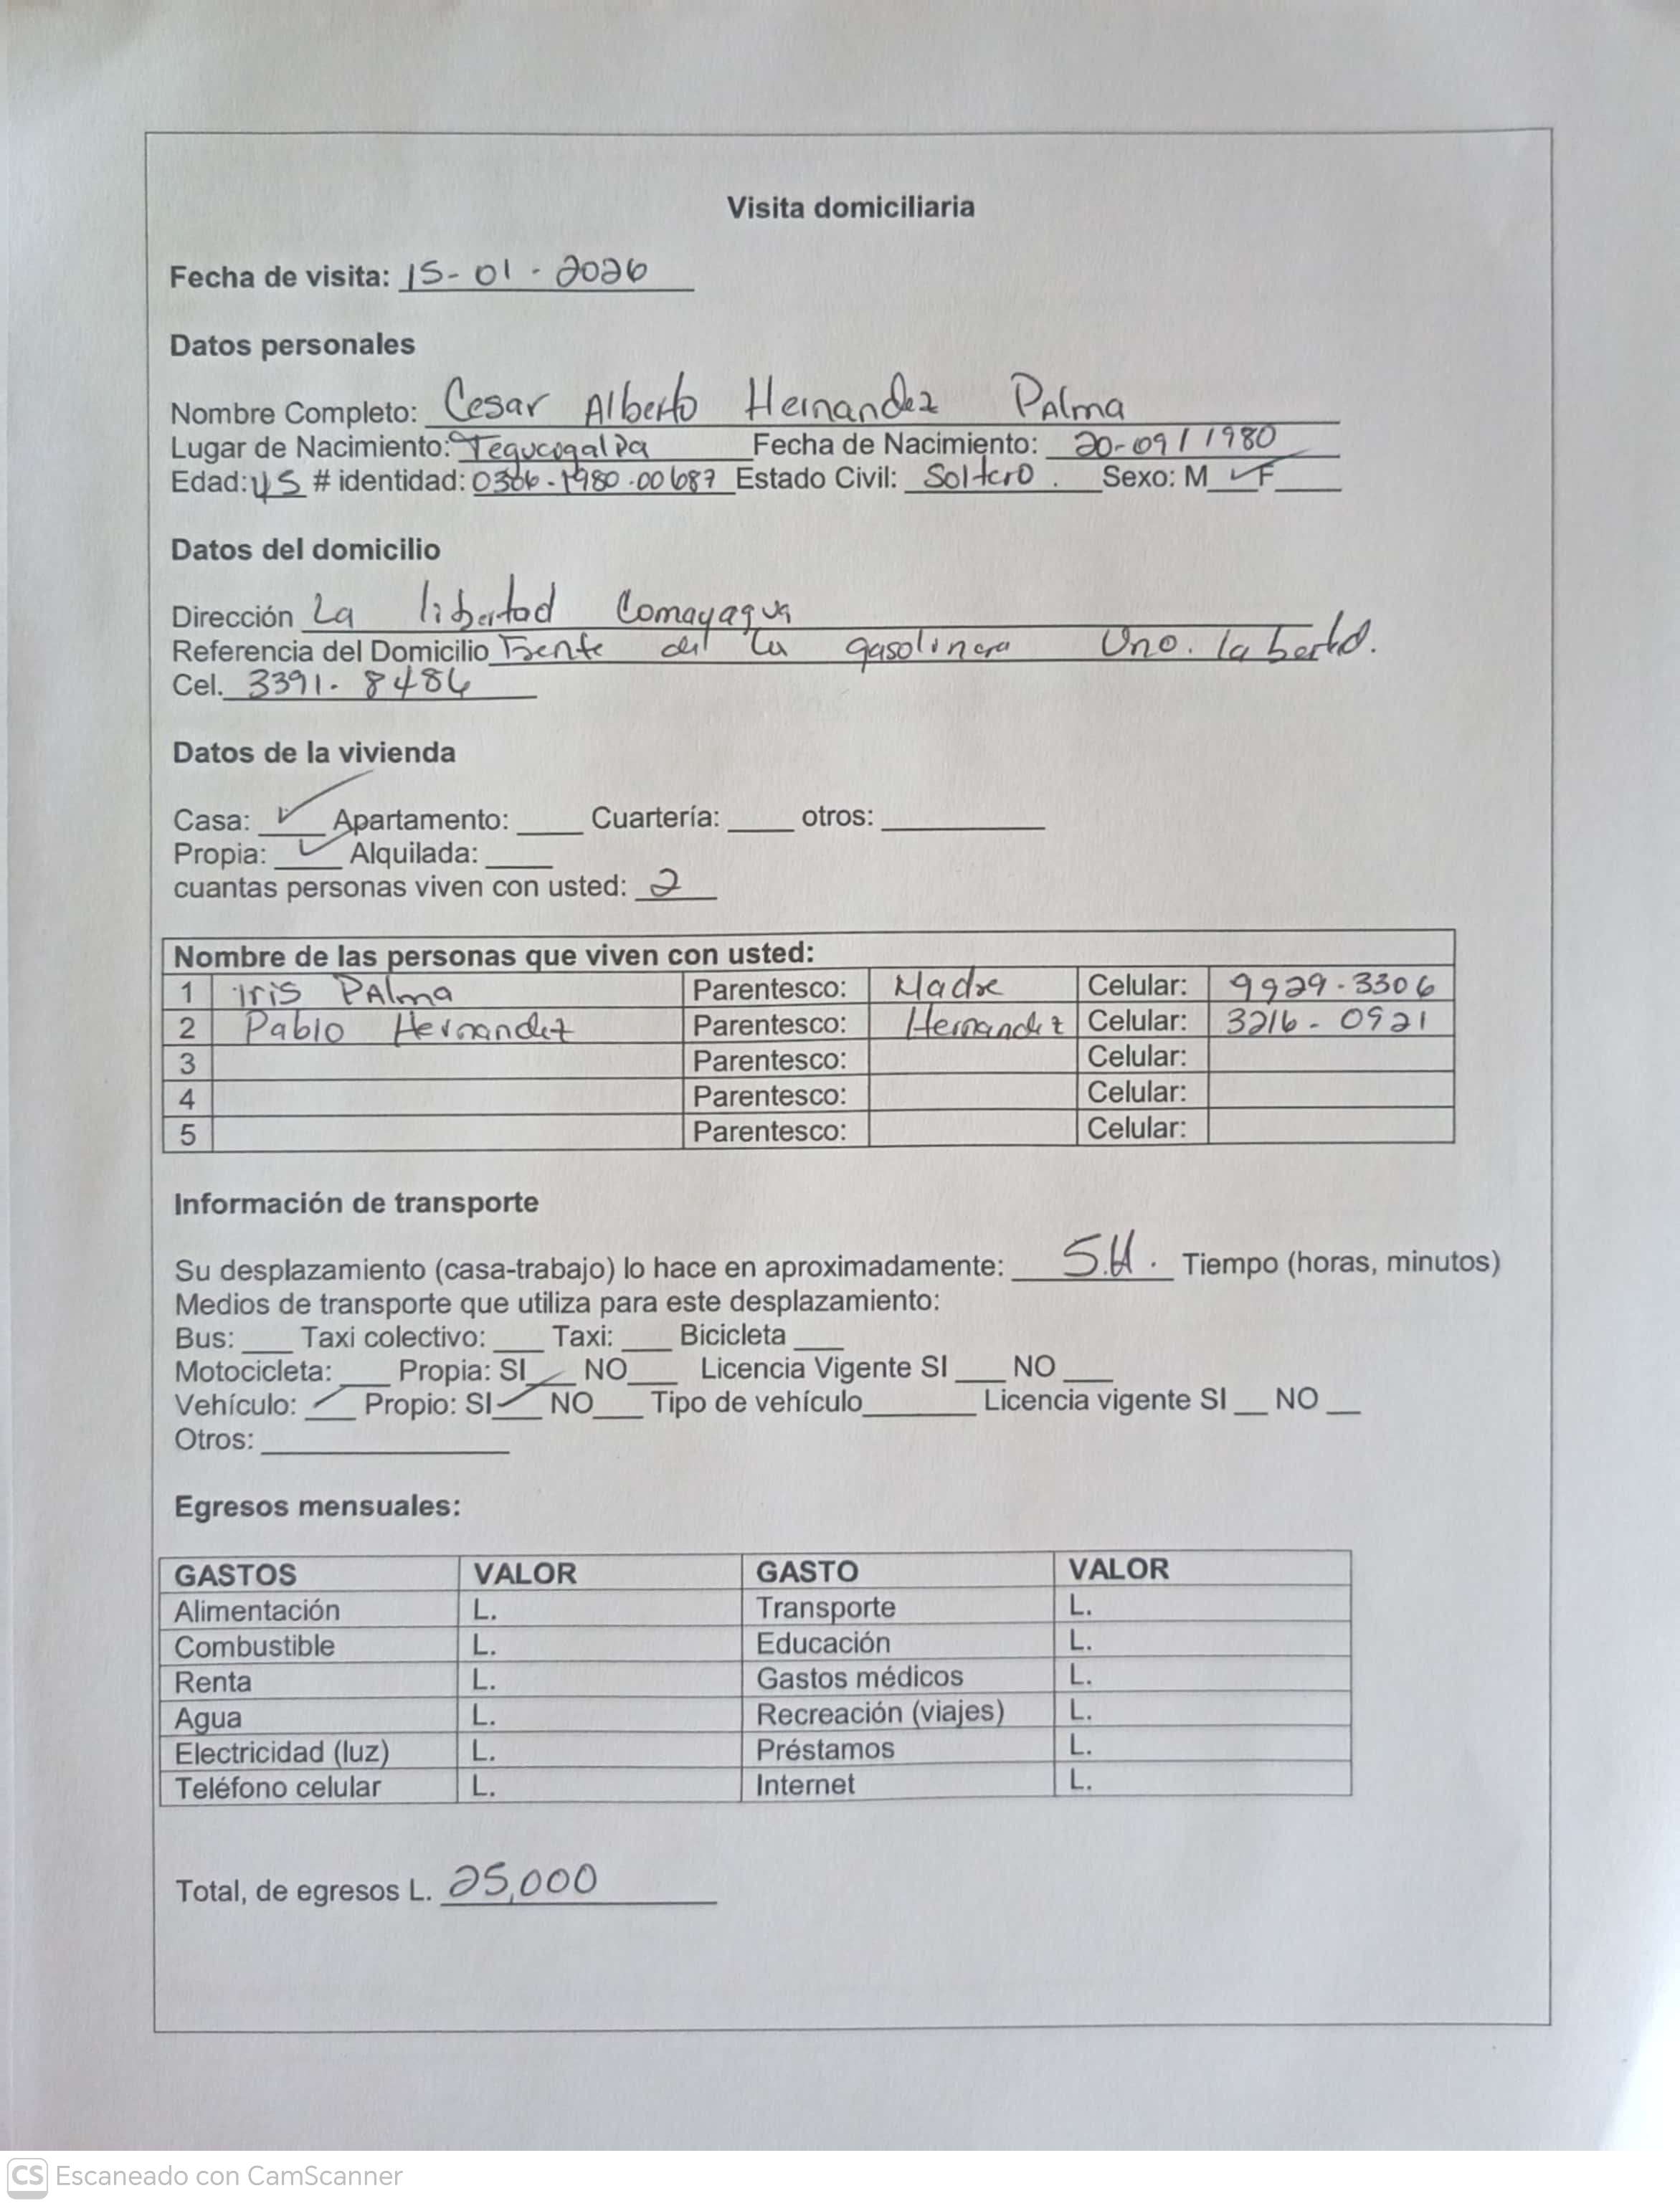 Visita domiciliaria
Fecha de visita: 15-01-2026
Datos personales
Nombre Completo: Cesar Alberto Hernandez Palma
Lugar de Nacimiento: Tegucogalpa Fecha de Nacimiento: 20-09/1980
Edad: 45 # identidad: 0306-1980-00687 Estado Civil: Soltero. Sexo: M ✓ F
Datos del domicilio
Dirección La libertad Comayagua
Referencia del Domicilio Frente de la gasolinera Uno.
Cel. 3391-8486
Datos de la vivienda
Casa: ✓ Apartamento: ____ Cuartería: ____ otros: ____
Propia: ✓ Alquilada: ____
cuantas personas viven con usted: 2
Nombre de las personas que viven con usted:
1 Iris Palma Parentesco: Madre Celular: 9929-3306
2 Pablo Hernandez Parentesco: Hernandez Celular: 3216-0921
3 Parentesco: Celular:
4 Parentesco: Celular:
5 Parentesco: Celular:
Información de transporte
Su desplazamiento (casa-trabajo) lo hace en aproximadamente: 5.H. Tiempo (horas, minutos)
Medios de transporte que utiliza para este desplazamiento:
Bus: ____ Taxi colectivo: ____ Taxi: ____ Bicicleta ____
Motocicleta: ____ Propia: SI ____ NO ____ Licencia Vigente SI ____ NO ____
Vehículo: ✓ Propio: SI ✓ NO ____ Tipo de vehículo ____ Licencia vigente SI __ NO __
Otros: ____
Egresos mensuales:
GASTOS VALOR GASTO VALOR
Alimentación L. Transporte L.
Combustible L. Educación L.
Renta L. Gastos médicos L.
Agua L. Recreación (viajes) L.
Electricidad (luz) L. Préstamos L.
Teléfono celular L. Internet L.
Total, de egresos L. 25,000
CS Escaneado con CamScanner